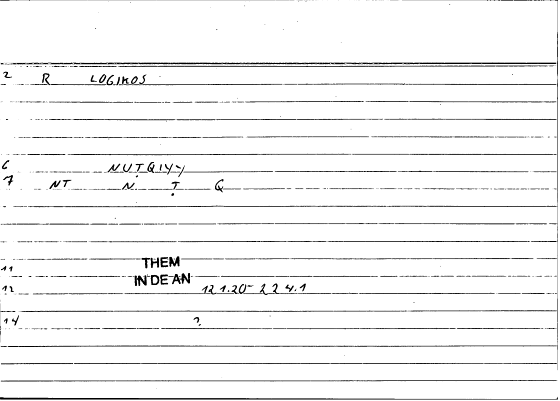 2 R LOGIKOS
6 NUṬQIYY
7 NT N Ṭ Q
11 THEM
IN DE AN
12 121.20-224.1
14 ?